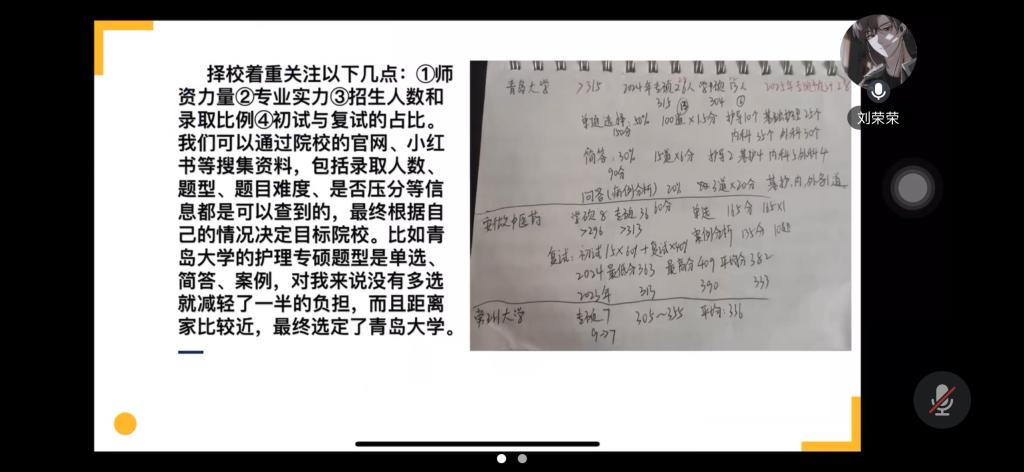 择校着重关注以下几点：①师
资力量②专业实力③招生人数和
录取比例④初试与复试的占比。
我们可以通过院校的官网、小红
书等搜集资料，包括录取人数、
题型、题目难度、是否压分等信
息都是可以查到的，最终根据自
己的情况决定目标院校。比如青
岛大学的护理专硕题型是单选、
简答、案例，对我来说没有多选
就减轻了一半的负担，而且距离
家比较近，最终选定了青岛大学。
青岛大学 >315 2024年专硕26人 学硕
315 304
单选选择 50% 100道×1.5分 护导10个 基础护理25个
150分 内科35个 外科30个
简答：30% 15道×6分 护导2 基护4 内科5 外科4
90分
问答(病例分析) 20% 3道×20分 基护、内、外各1道
60分
安徽中医药 学硕8 专硕36 单选 165分 165×1
>296 >313 案例分析 135分
复试：初试/5×60%+复试×40%
2024 最低分363 最高分409 平均分382
2023年 313 390 353
苏州大学 专硕7 305~355 平均:336
9→7
刘荣荣